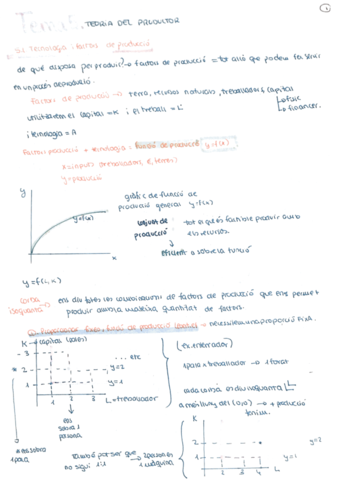 Tema 1: TEORIA DEL PRODUCTOR
1
Tecnologia i factors de producció
de què disposa per produir? → factors de producció = tot allò que podem fer servir
en un procés de producció.
factors de producció → terra, recursos naturals, treballadors, capital
↳ físic
↳ financer.
utilitzarem el capital = K i el treball = L
i tecnologia = A
Factors producció + tecnologia: funció de producció y=f(x)
x=inputs (treballadors, K, terres)
y=producció
y
y=f(x)
x
gràfic de funció de
producció general y=f(x)
conjunt de
producció
tot el que és factible produir amb
els recursos
eficient → sobre la funció
y=f(L,K)
corba
isoquanta
→ ens diu totes les combinacions de factors de producció que ens permet
produir amb la mateixa quantitat de factors.
K = capital (pales)
3
2
1
1 2 3 L=treballador
... etc
y=2
y=1
(ex. treballador)
1 pala × treballador → 1 forat
cada corba és d'una isoquanta L
a més lluny del (0,0) → + producció
tenim.
em
sobra 1
persona
em sobra
1 pala
també pot ser que
no sigui 1:1
→ 2 persones
1 màquina
K
2
1
2 3 4 L
y=2
y=1